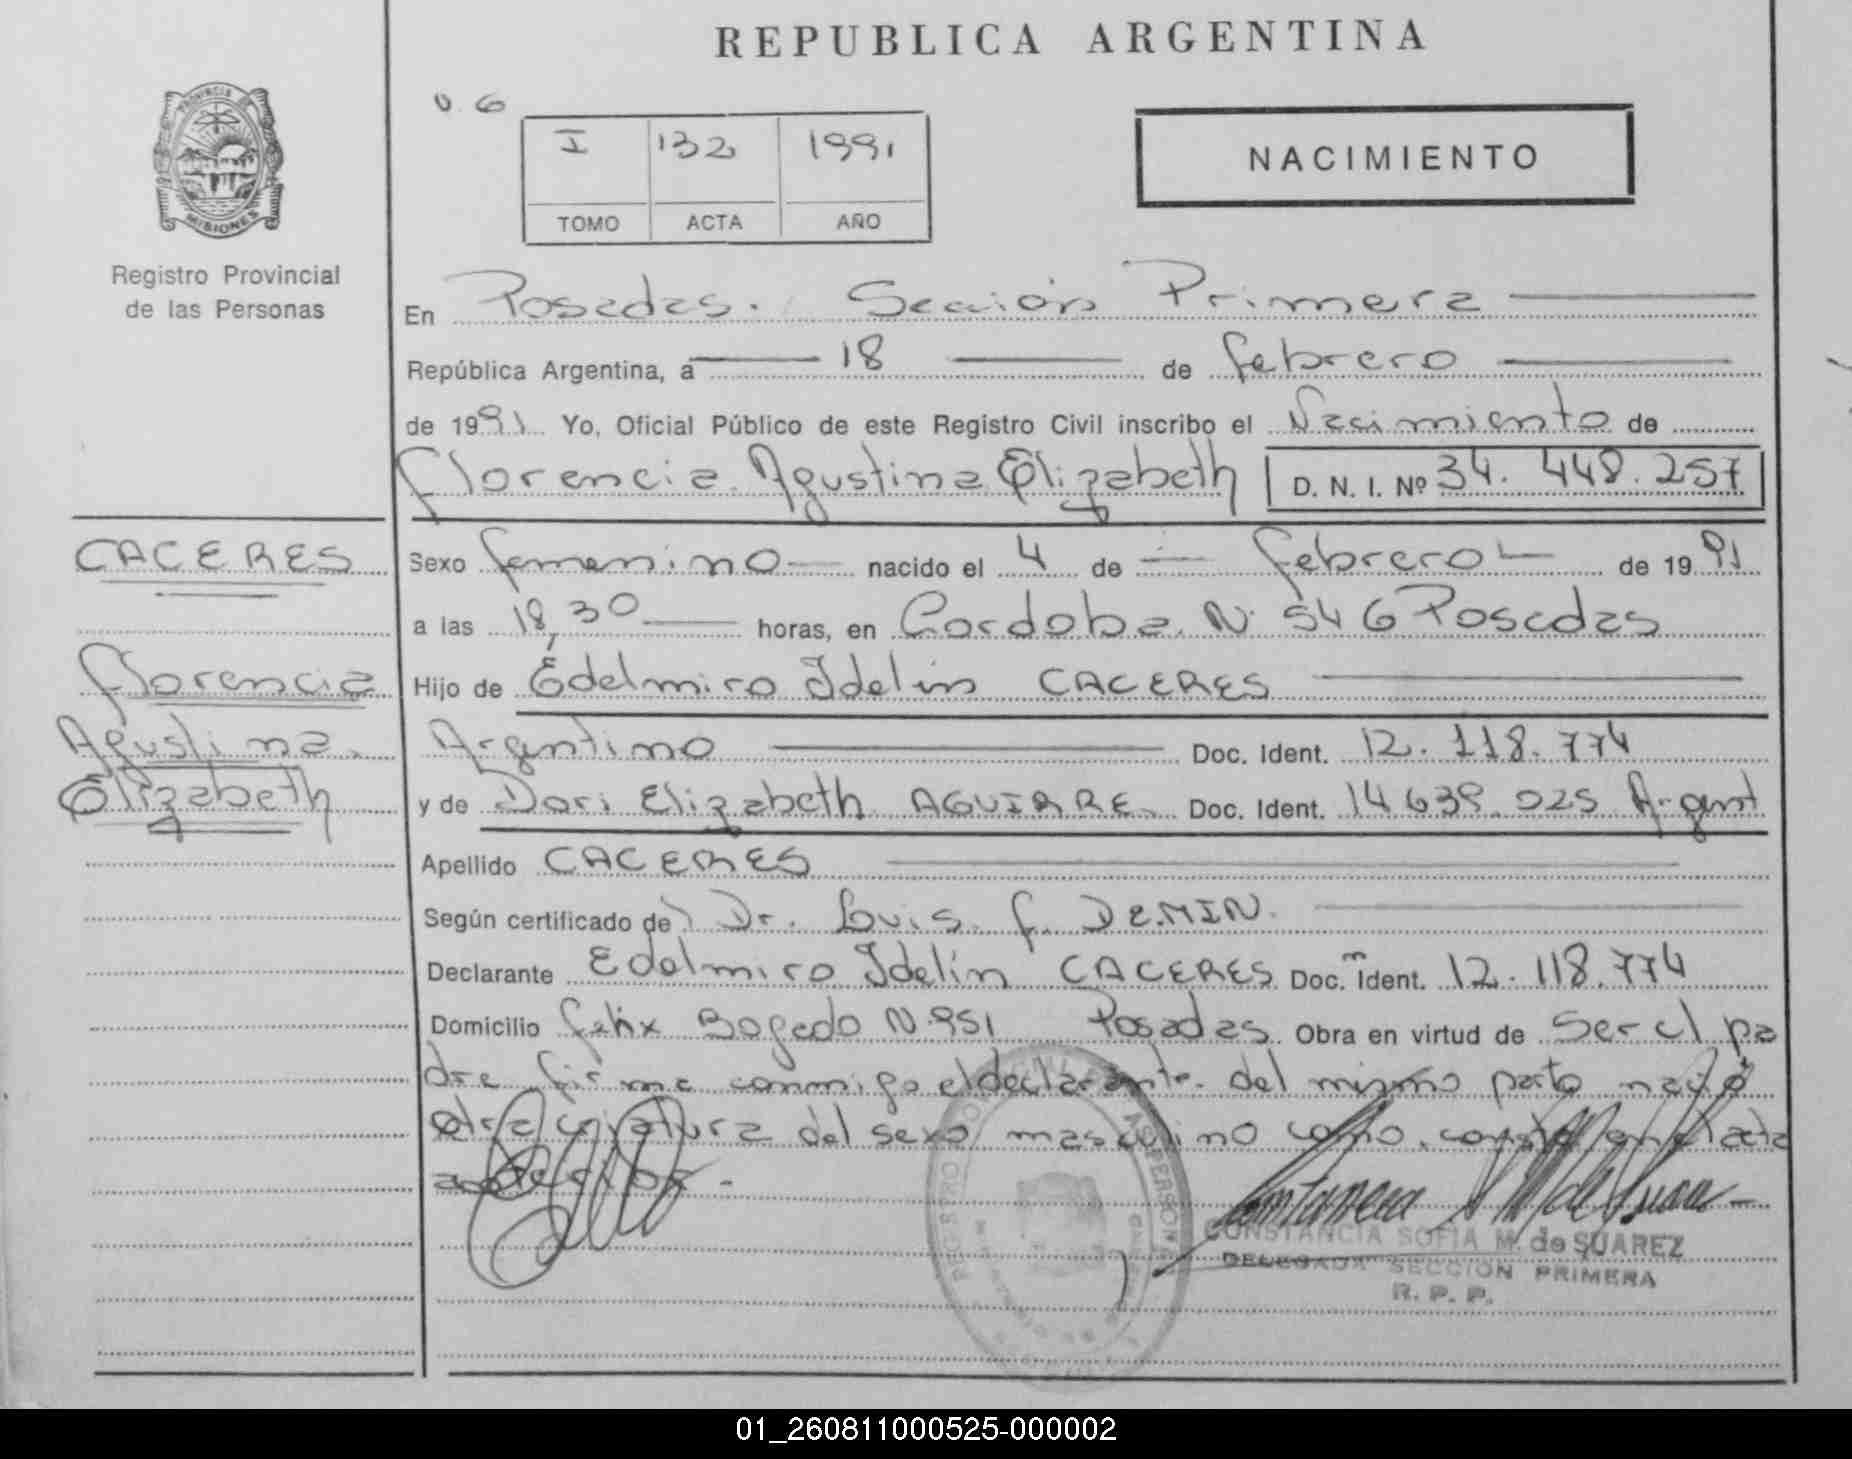 REPUBLICA ARGENTINA
PROVINCIA DE
MISIONES
Registro Provincial
de las Personas
v. 6
I 132 1991
TOMO ACTA AÑO
NACIMIENTO
En Posadas. Sección Primera
República Argentina, a 18 de febrero
de 1991 Yo, Oficial Público de este Registro Civil inscribo el Nacimiento de
Florencia Agustina Elizabeth D. N. I. Nº 34. 448. 257
CACERES
Florencia
Agustina
Elizabeth
Sexo femenino nacido el 4 de febrero de 1991
a las 18,30 horas, en Cordoba N. 546 Posadas
Hijo de Edelmiro Idelin CACERES
Argentino Doc. Ident. 12. 118. 774
y de Dori Elizabeth AGUIRRE Doc. Ident. 14 639. 025 Argent
Apellido CACERES
Según certificado de Dr. Luis f. DEMIN.
Declarante Edelmiro Idelín CACERES Doc. Ident. 12. 118. 774
Domicilio felix Bogado N. 951 Posadas Obra en virtud de ser el pa
dre firma conmigo el declarante. del mismo parto nació
otra criatura del sexo masculino como consta en el acta
anterior.-
CONSTANCIA SOFIA M. de SUAREZ
DELEGADA SECCION PRIMERA
R. P. P.
01_260811000525-000002